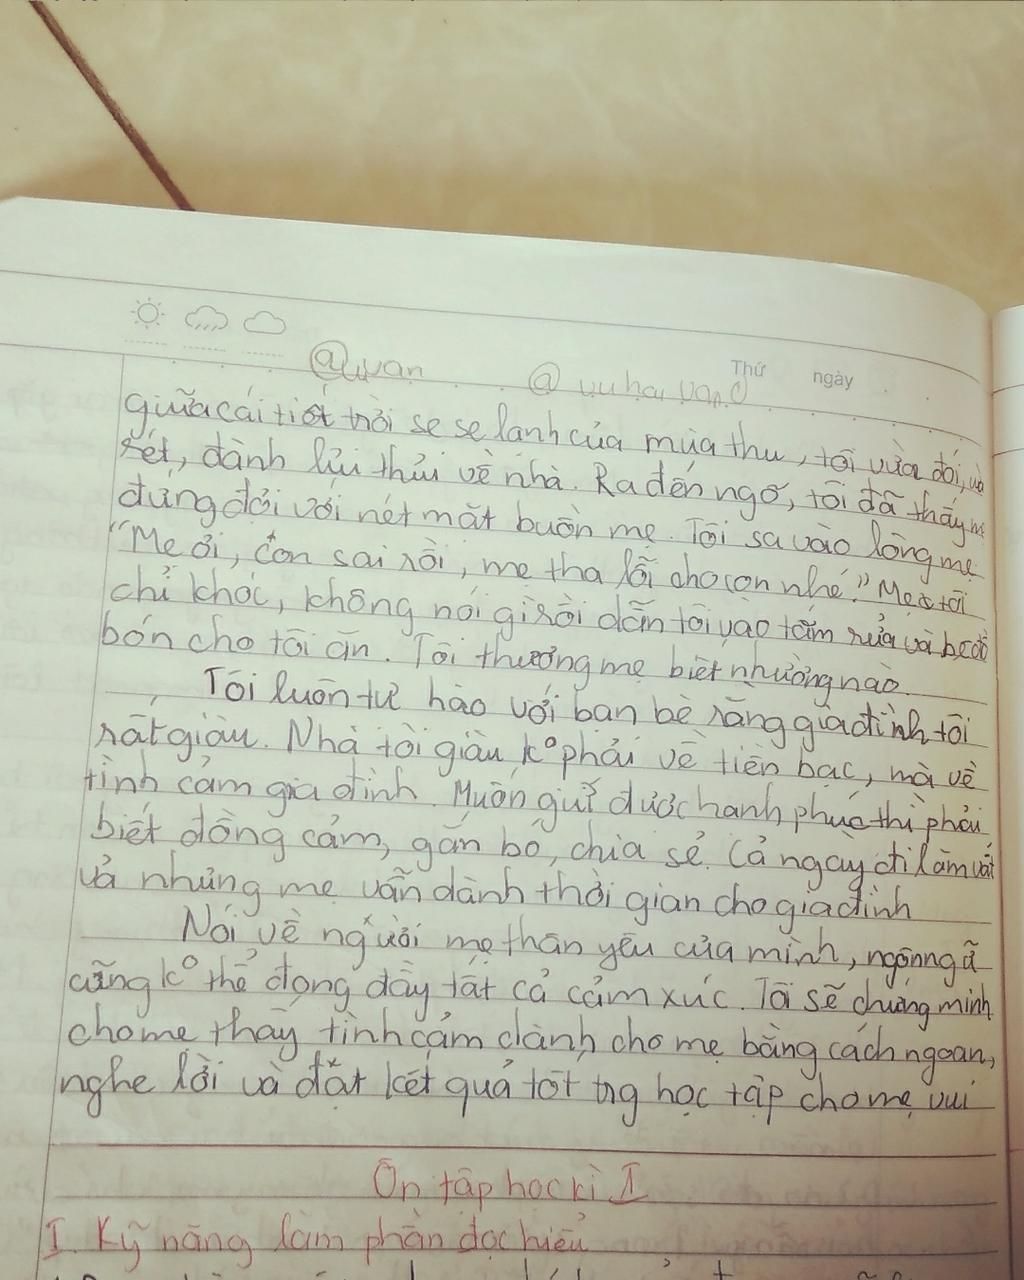 @wan @ vuhai van
Thứ ngày
giữa cái tiết trời se se lạnh của mùa thu, tôi vừa đói, và
rét, đành lủi thủi về nhà. Ra đến ngõ, tôi đã thấy mẹ
đứng đợi với nét mặt buồn mẹ. Tôi sa vào lòng mẹ
"Mẹ ơi, con sai rồi, mẹ tha lỗi cho con nhé." Mẹ tôi
chỉ khóc, không nói gì rồi dẫn tôi vào tắm rửa và
bón cho tôi ăn. Tôi thương mẹ biết nhường nào.
Tôi luôn tự hào với bạn bè rằng gia đình tôi
rất giàu. Nhà tôi giàu k° phải về tiền bạc, mà về
tình cảm gia đình. Muốn giữ được hạnh phúc thì phải
biết đồng cảm, gắn bó, chia sẻ. Cả ngày đi làm vất
vả nhưng mẹ vẫn dành thời gian cho gia đình
Nói về người mẹ thân yêu của mình, ngôn ngữ
cũng k° thể đong đầy tất cả cảm xúc. Tôi sẽ chứng minh
cho mẹ thấy tình cảm dành cho mẹ bằng cách ngoan,
nghe lời và đạt kết quả tốt trg học tập cho mẹ vui
Ôn tập học kì I
I. Kỹ năng làm phần đọc hiểu